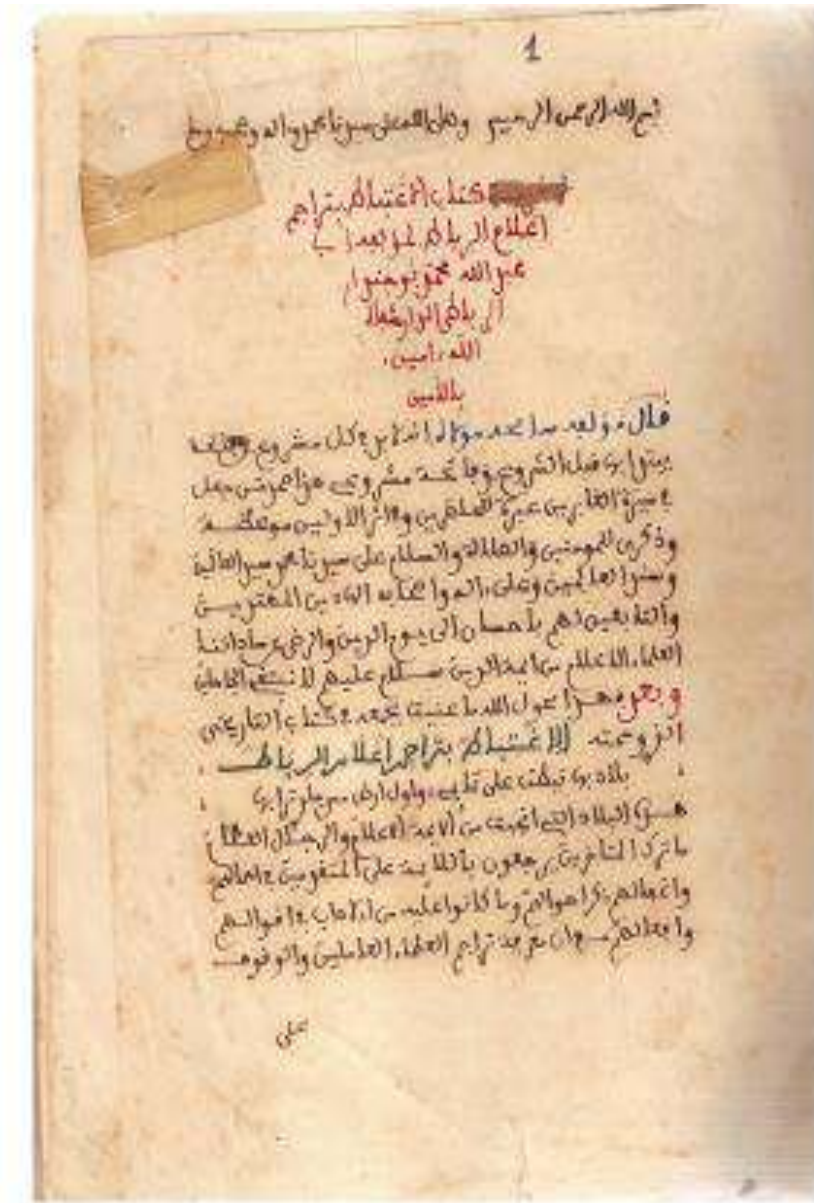 1
بسم الله الرحمن الرحيم وصلى الله على سيدنا محمد وءاله وصحبه وسلم
كتاب الاغتباط بتراجم
اعلام الرباط لمؤلفه اب
عبد الله محمد بوجندار
الرباطي الدار
الله ءامين
قال مؤلفه لا بد لكل مشروع
قبل الشروع وفاتحة مشروعي هذا حمد من جعل
في سيرة الغابرين عبرة للحاضرين وءاثار الاولين موعظة
وذكرى للمومنين والصلاة والسلام على سيدنا محمد سيد العالمين
وسند العالمين وعلى ءاله واصحابه الهادين المهتدين
والتابعين لهم باحسان الى يوم الدين والرضى عن ساداتنا
العلماء الاعلام من ايمة الدين سلام عليهم لا نبتغي الجاهلين
وبعد فهذا بحول الله ما عنيت بجمعه في كتاب التاريخي
الذي سميته الاغتباط بتراجم اعلام الرباط
بلاد بها نيطت علي واول ارض مس جلدي ترابها
هذه البلاد التي انجبت من الايمة الاعلام والرجال العظام
ما ترك المتاخرين يرجعون باللايمة على المتقدمين في اهمالهم
واغفالهم ذكر احوالهم وما كانوا عليه من الاداب في اقوالهم
وافعالهم مع ان معرفة تراجم العلماء العاملين والوقوف
على